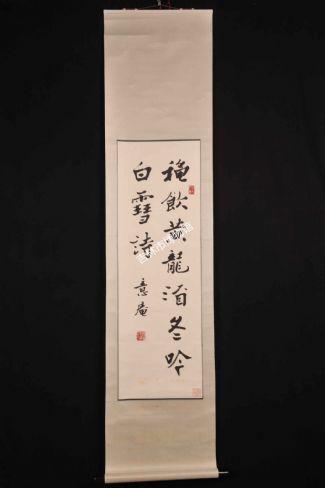 穐飲黄龍酒冬吟
白雪詩
意庵